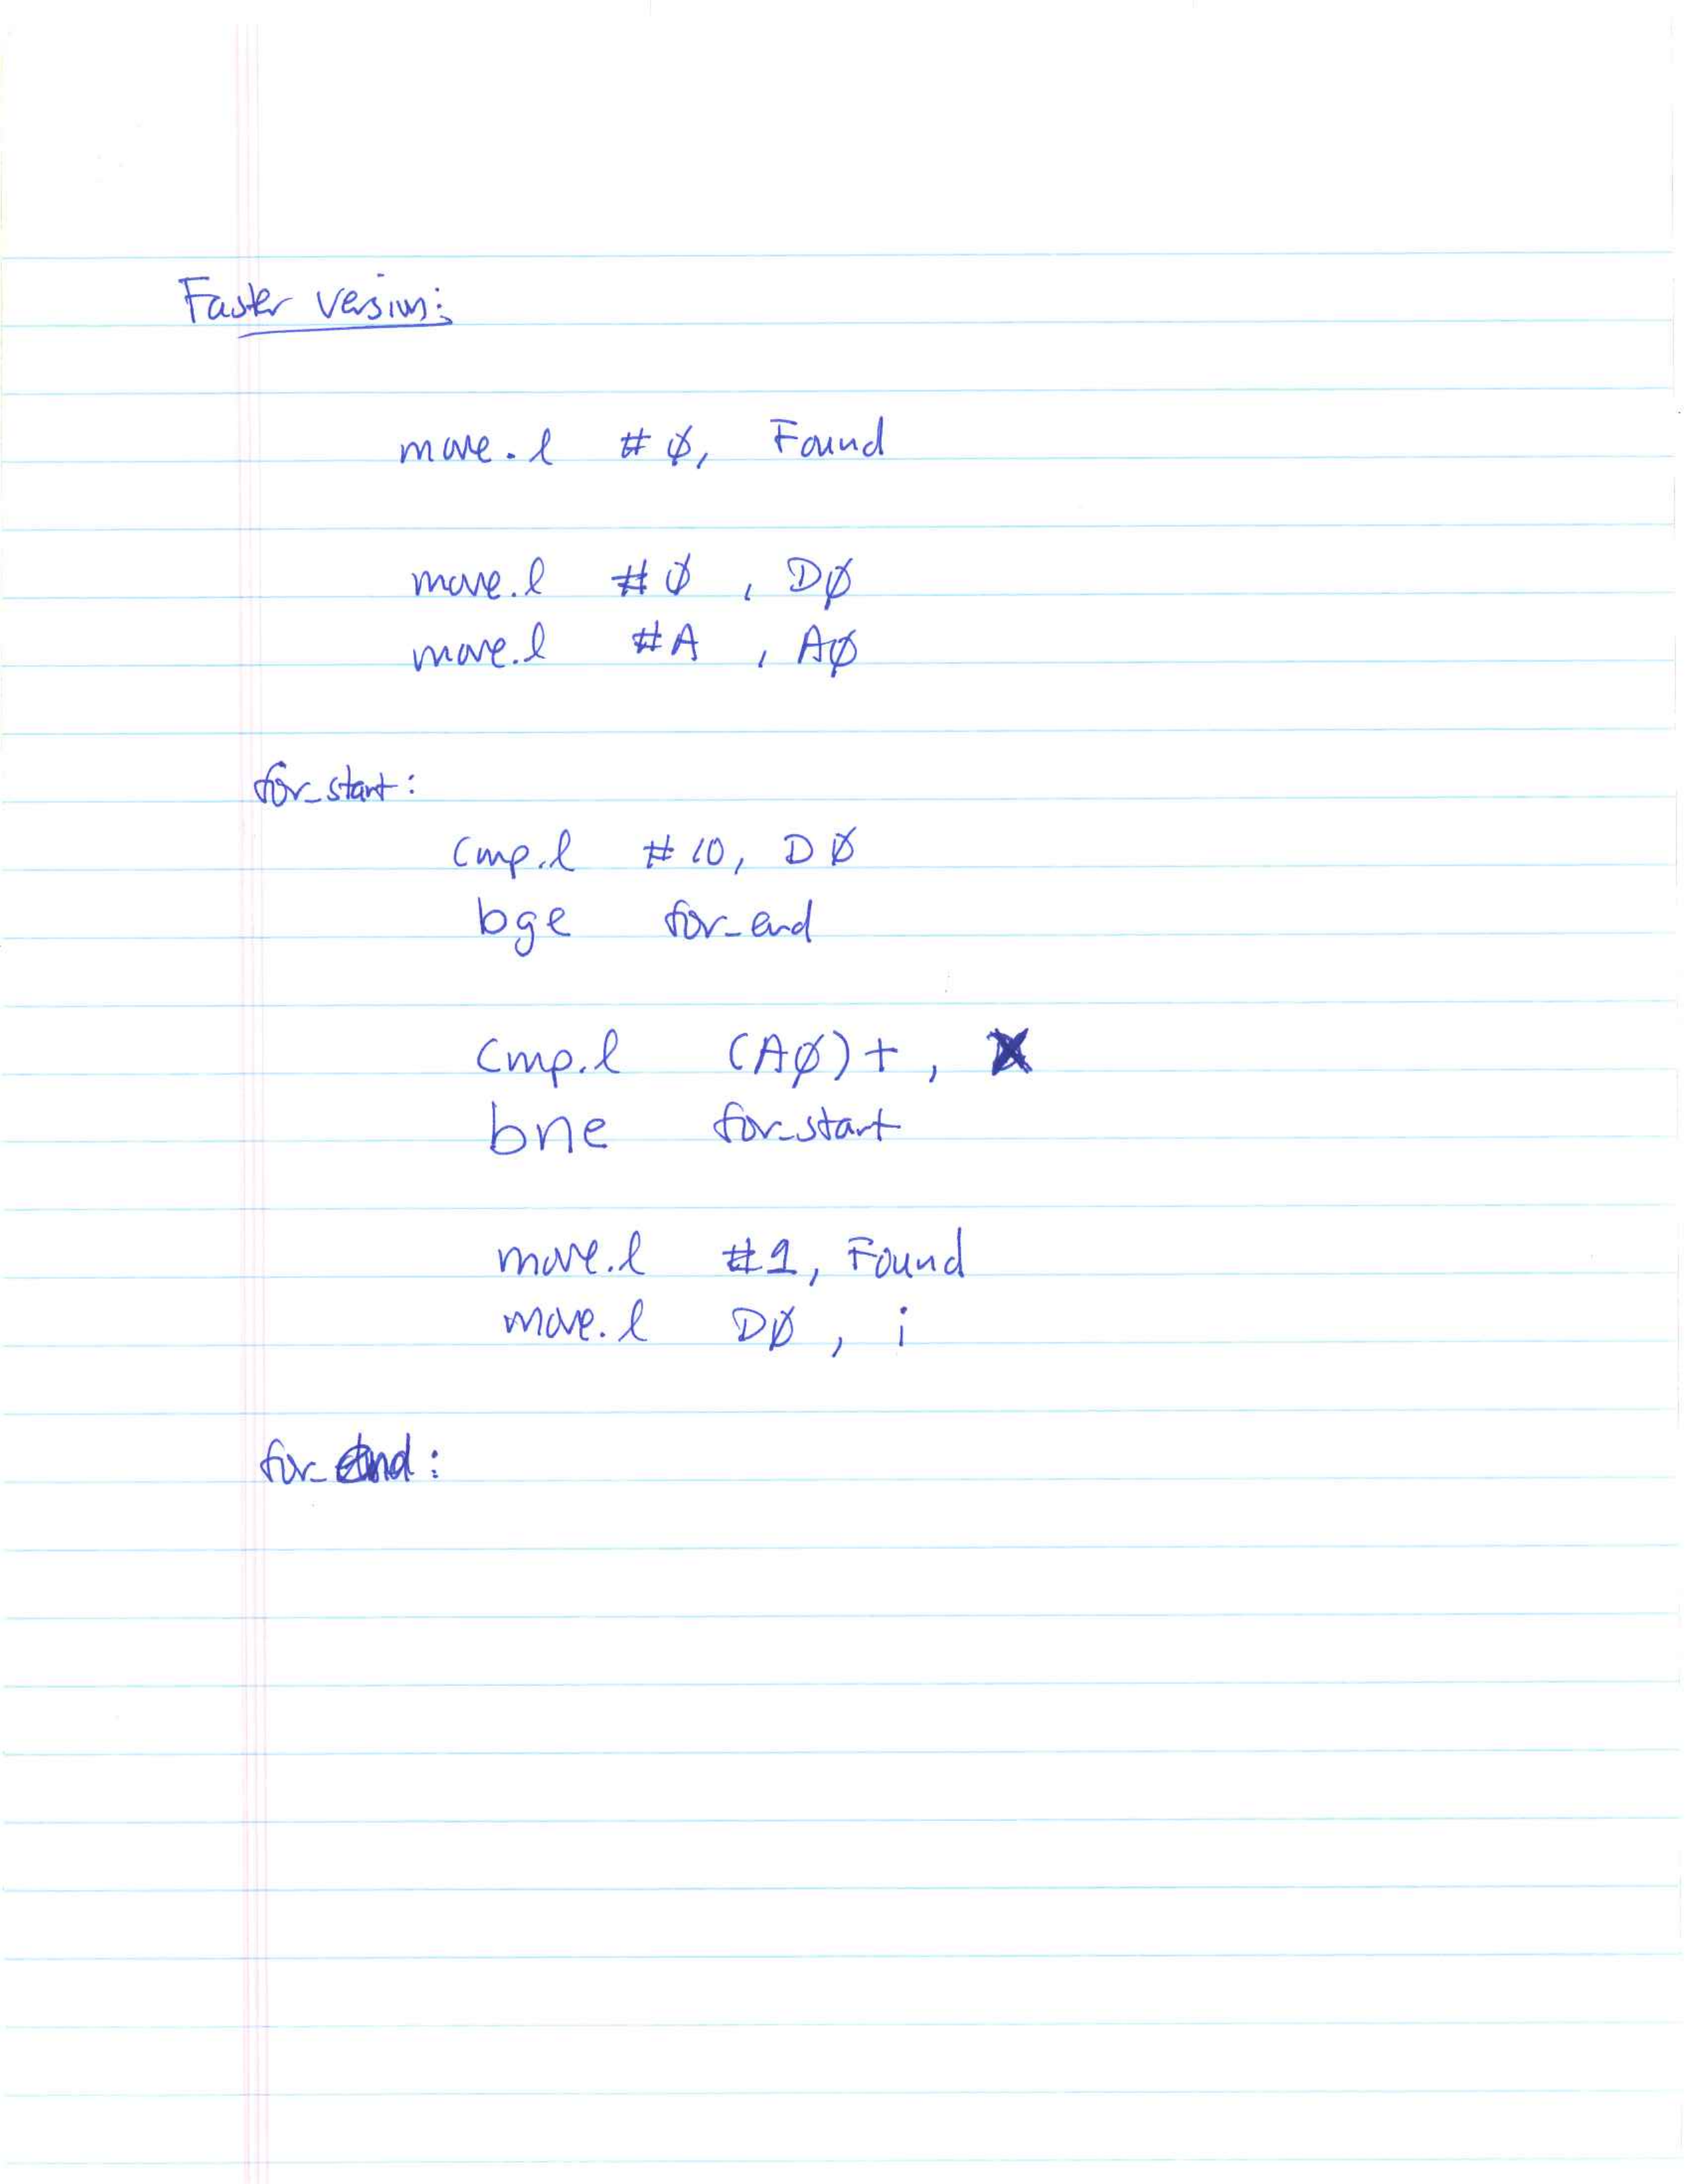 Faster version:
move.l #0, Found
move.l #0, D0
move.l #A, A0
for_start:
cmp.l #10, D0
bge for_end
cmp.l (A0)+, X
bne for_start
move.l #1, Found
move.l D0, i
for_end: